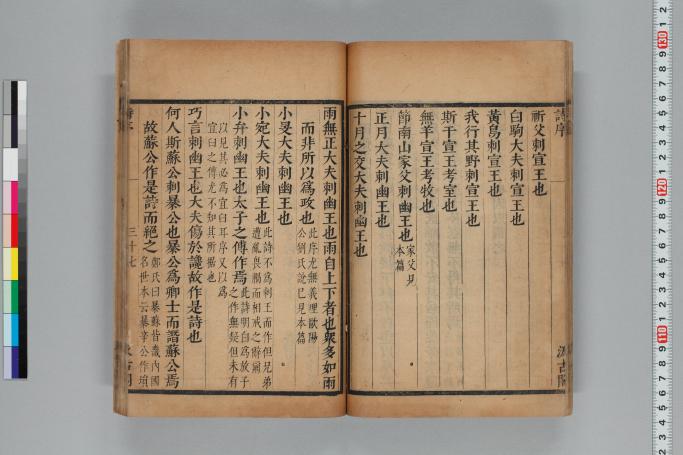 詩序
祈父刺宣王也
白駒大夫刺宣王也
黃鳥刺宣王也
我行其野刺宣王也
斯干宣王考室也
無羊宣王考牧也
節南山家父刺幽王也家父見本篇
正月大夫刺幽王也
十月之交大夫刺幽王也
汲古閣
雨無正大夫刺幽王也雨自上下者也衆多如雨
而非所以爲政也此序尤無義理歐陽公劉氏說已見本篇
小旻大夫刺幽王也
小宛大夫刺幽王也此詩不爲刺王而作但兄弟遭亂畏禍而相戒之辭爾
小弁刺幽王也太子之傅作焉此詩明白爲放子之作無疑但未有
以見其必爲宜臼耳序又以爲宜臼之傅尤不知其所據也
巧言刺幽王也大夫傷於讒故作是詩也
何人斯蘇公刺暴公也暴公爲卿士而譖蘇公焉
故蘇公作是詩而絕之鄭氏曰暴蘇皆畿內國名世本云暴辛公作塤
三十七